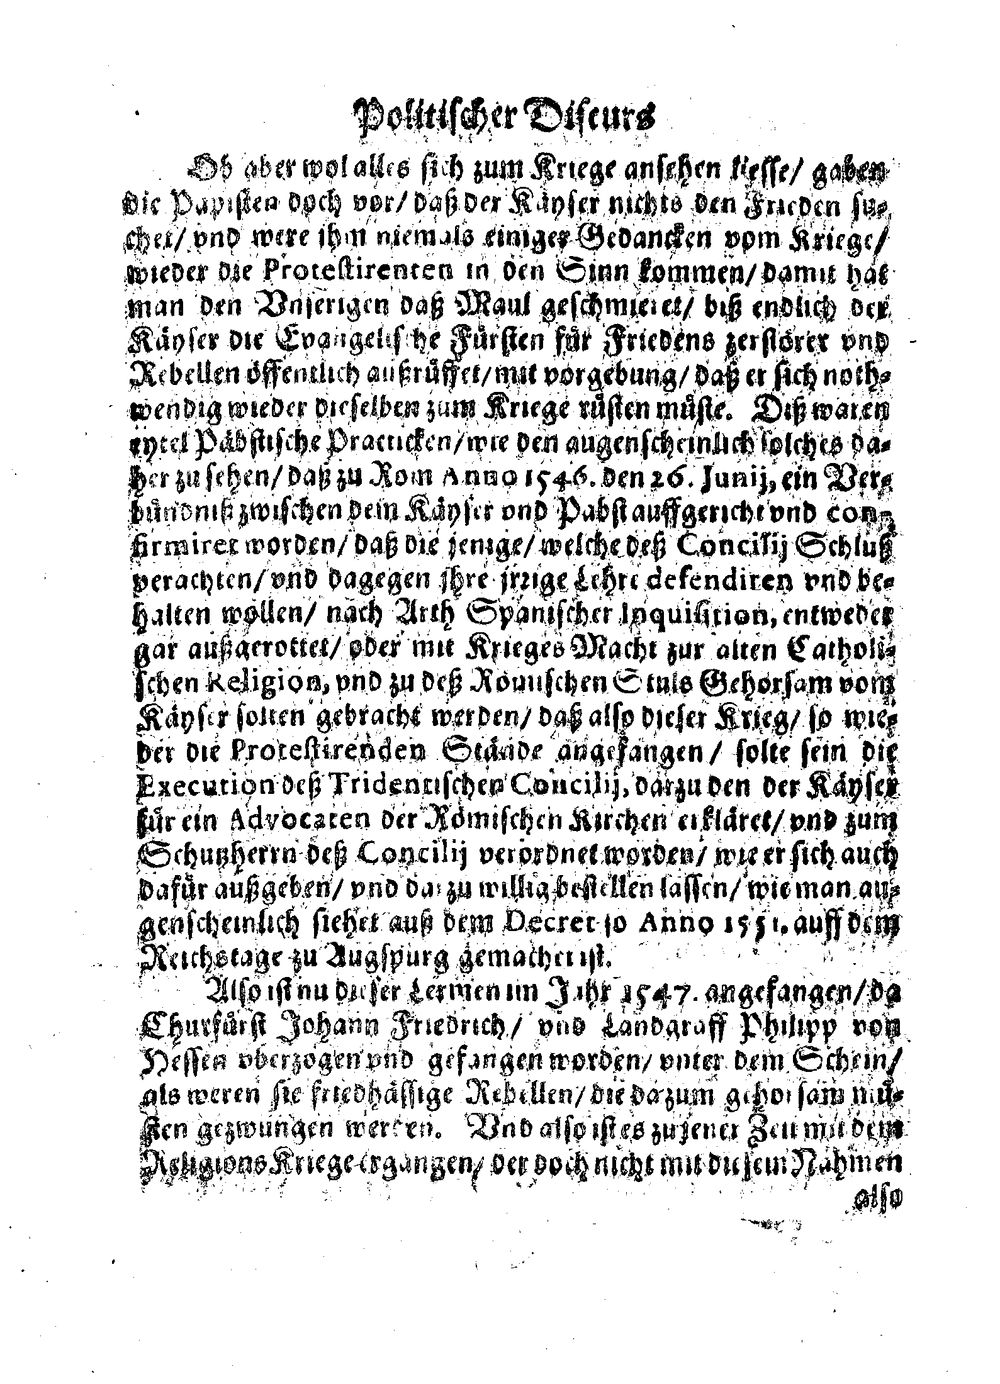 Politischer Discurs
Ob aber wol alles sich zum Kriege ansehen liesse/ gaben
die Papisten doch vor/ daß der Käyser nichts den Frieden su-
chet/ vnd were ihm niemals einiger Gedancken vom Kriege/
wieder die Protestirenten in den Sinn kommen/ damit hat
man den Vnserigen daß Maul geschmieret/ biß endlich der
Käyser die Evangelische Fürsten für Friedens zerstörer vnd
Rebellen öffentlich außrüffet/ mit vorgebung/ daß er sich noth-
wendig wieder dieselben zum Kriege rüsten müste. Diß waren
eytel Päbstische Practicken/ wie den augenscheinlich solches da-
her zu sehen/ daß zu Rom Anno 1546. den 26. Junij, ein Ver-
bündniß zwischen dem Käyser vnd Pabst auffgericht vnd con-
firmiret worden/ daß die jenige/ welche deß Concilij Schluß
verachten/ vnd dagegen ihre jrrige Lehre defendiren vnd be-
halten wollen/ nach Arth Spanischer Inquisition, entweder
gar außgerottet/ oder mit Krieges Macht zur alten Catholi-
schen Religion, vnd zu deß Römischen Stuls Gehorsam vom
Käyser solten gebracht werden/ daß also dieser Krieg/ so wie-
der die Protestirenden Stände angefangen/ solte sein die
Execution deß Tridentischen Concilij, darzu den der Käyser
für ein Advocaten der Römischen Kirchen erkläret/ vnd zum
Schutzherrn deß Concilij verordnet worden/ wie er sich auch
dafür außgeben/ vnd darzu willig bestellen lassen/ wie man au-
genscheinlich siehet auß dem Decret so Anno 1551. auff dem
Reichstage zu Augspurg gemachet ist.
Also ist nu dieser Lermen im Jahr 1547. angefangen/ da
Churfürst Johann Friedrich/ vnd Landgraff Philipp von
Hessen vberzogen vnd gefangen worden/ vnter dem Schein/
als weren sie friedhässige Rebellen/ die da zum gehorsam mü-
sten gezwungen werden. Vnd also ist es zu jener Zeit mit dem
Religions Kriege ergangen/ der doch nicht mit diesem Nahmen
also